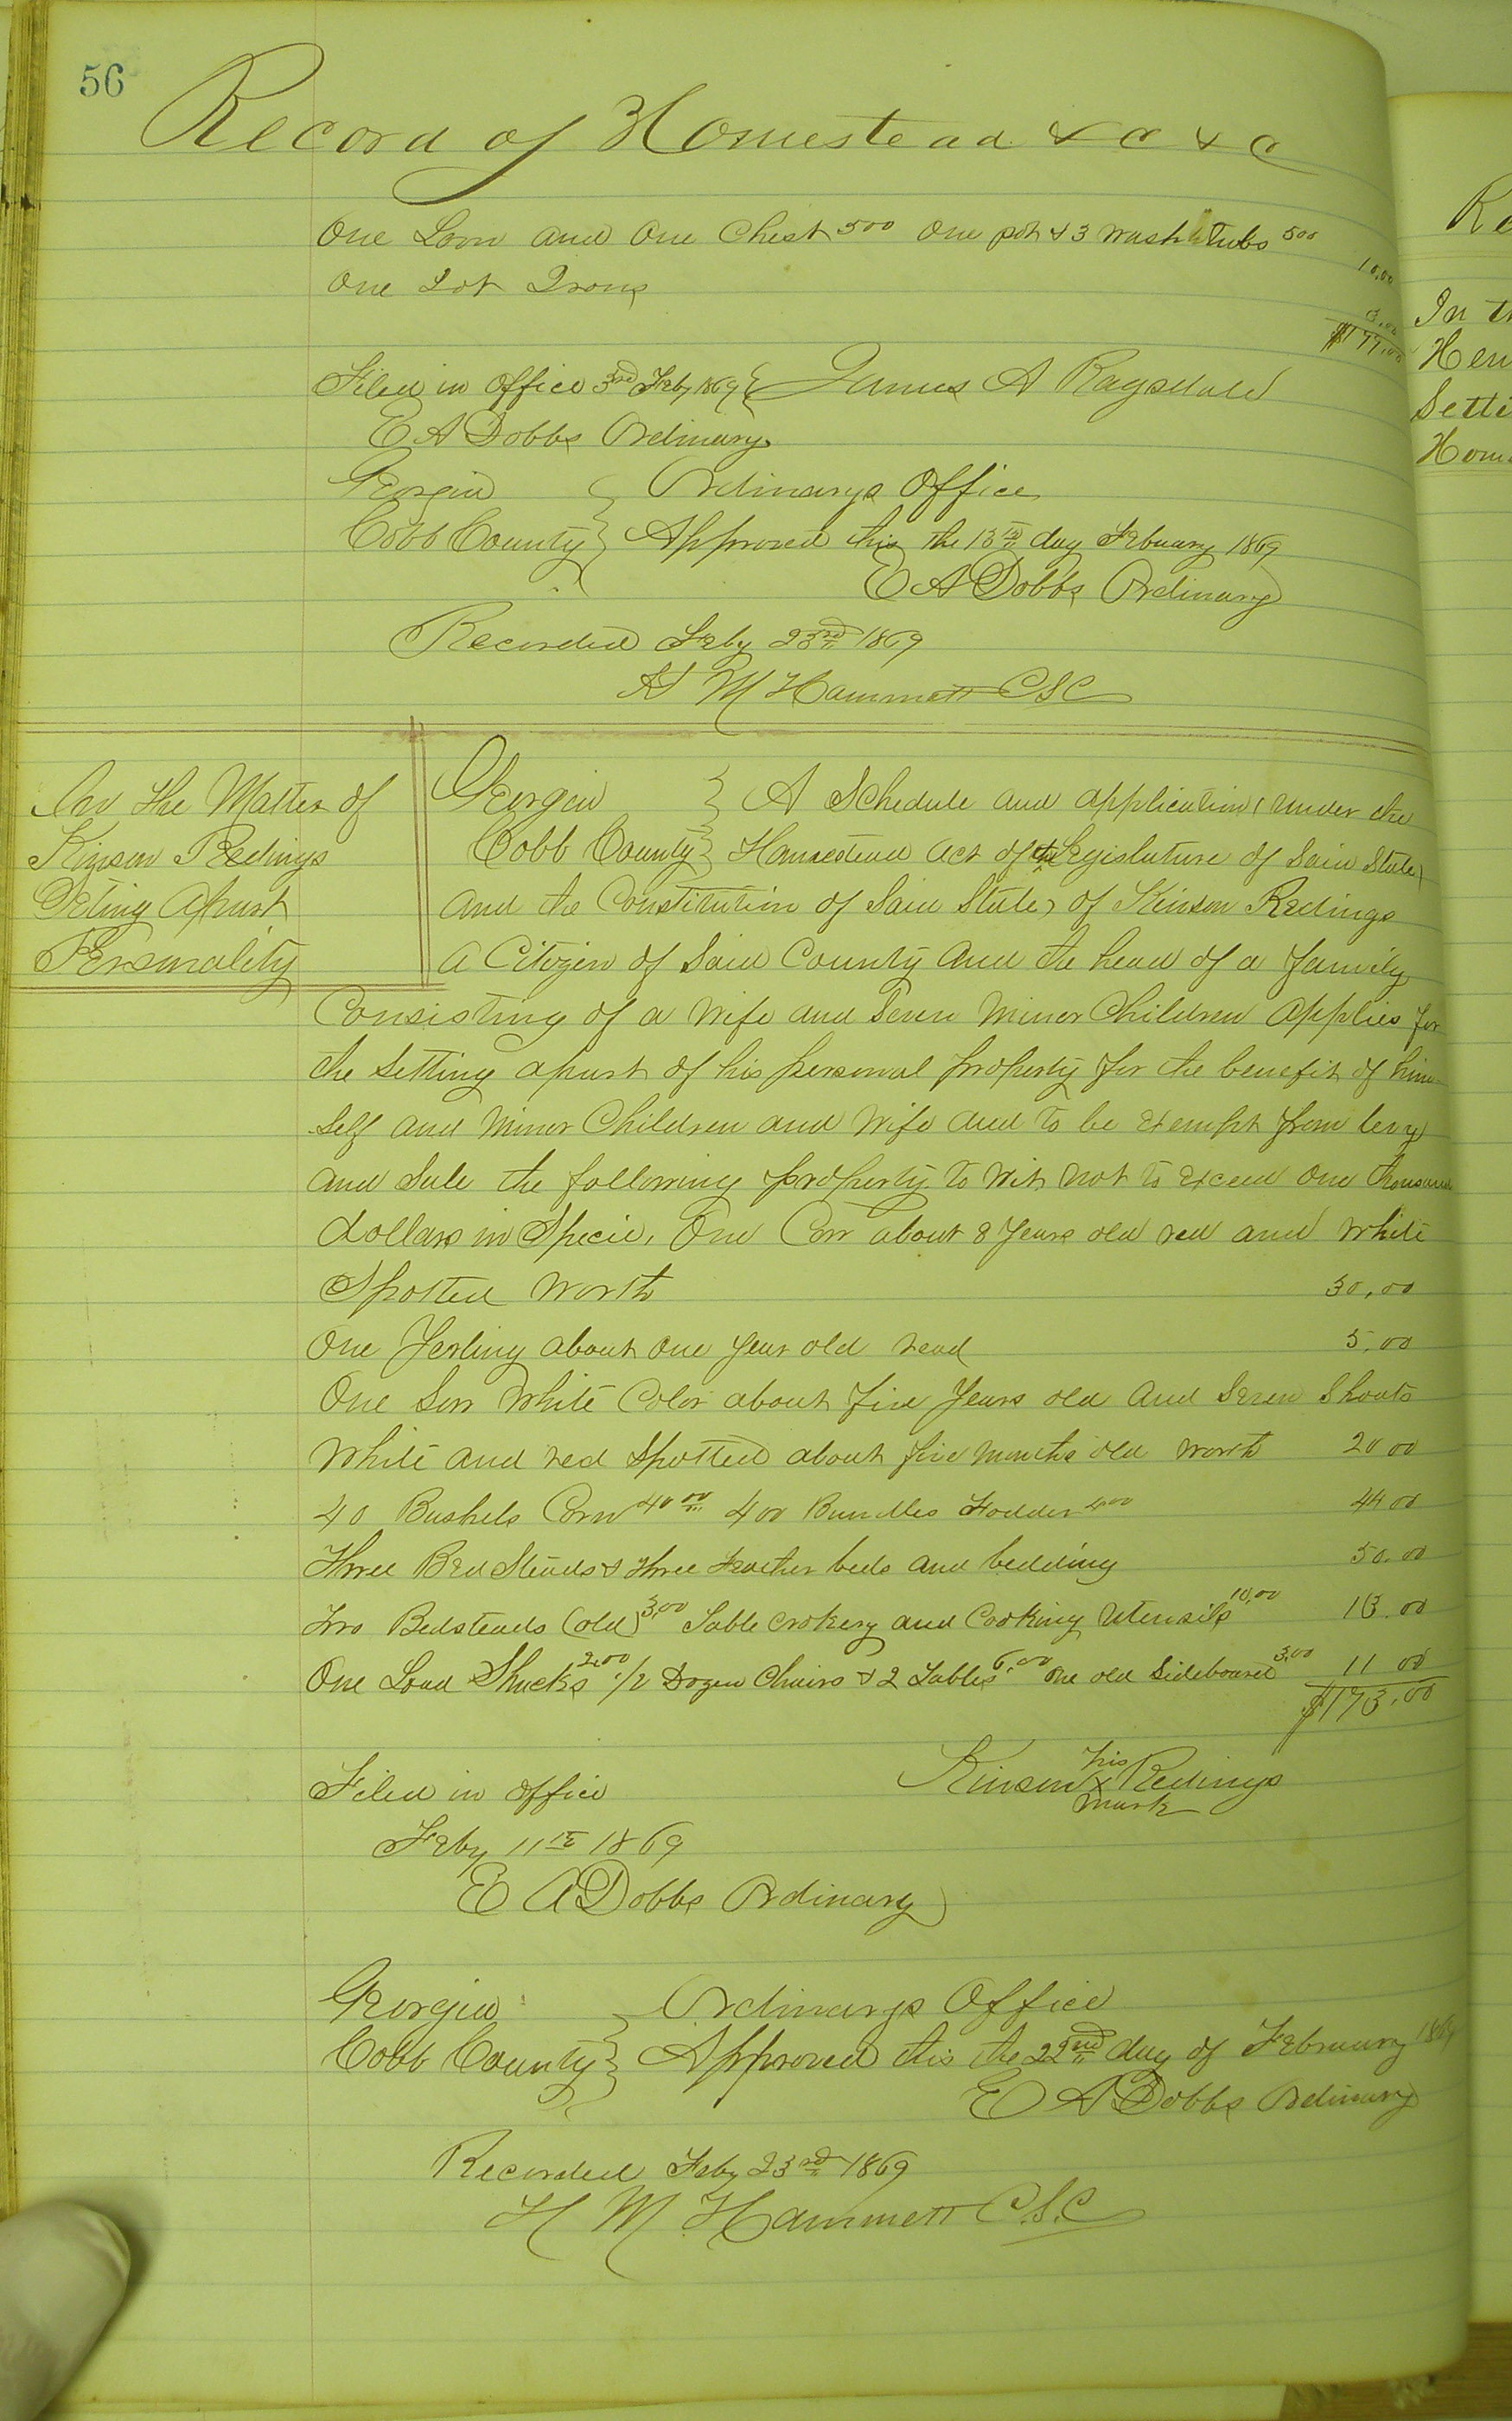 56
Record of Homestead & C & C
One Loom and One Chest 5 00 One pot & 3 Wash tubs 5 00
10.00
One Lot Irons
3.00
Filed in Office 3rd Feby 1869 } James A Ragsdale
E A Dobbs Ordinary
Georgia } Ordinarys Office
Cobb County } Approved this the 13th day Febuary 1869
E A Dobbs Ordinary
Recorded Feby 23rd 1869
H M Hammett CSC
In the Matter of
Kinson Redings
Seting Apart
Personality
Georgia } A Schedule and application (under the
Cobb County } Homestead Act of the Legislature of Said State)
and the Constitution of Said State) of Kinson Redings
a Citizen of Said County and the head of a family
Consisting of a Wife and Seven Minor Children applies for
the Setting apart of his personal property for the benefit of him
Self and Minor Children and Wife and to be Exempt from levy
and Sale the following property to Wit not to Exceed One thousand
dollars in Specie, One Cow about 8 Years old red and White
Spotted Worth 30,00
One Yerling about One year old read 5.00
One Sow White Color about five Years old and Seven Shoats
White and red Spotted about five months old worth 20 00
40 Bushels Corn 40 00 400 Bundles Fodder 4 00 44 00
Three Bed Steads & three Feather beds and bedding 50.00
Two Bedsteads (old) 3,00 Table crokery and Cooking Utensils 10,00 13.00
One Load Shucks 2.00 1/2 Dozen Chairs & 2 Tables 6,00 One old Sideboard 3,00 11 00
$173.00
Filed in office
Kinson his x mark Redings
Feby 11th 1869
E A Dobbs Ordinary
Georgia } Ordinarys Office
Cobb County } Approved this the 22nd day of February 1869
E A Dobbs Ordinary
Recorded Feby 23rd 1869
H M Hammett C.S.C
Re
In th
Hen
Setti
Home